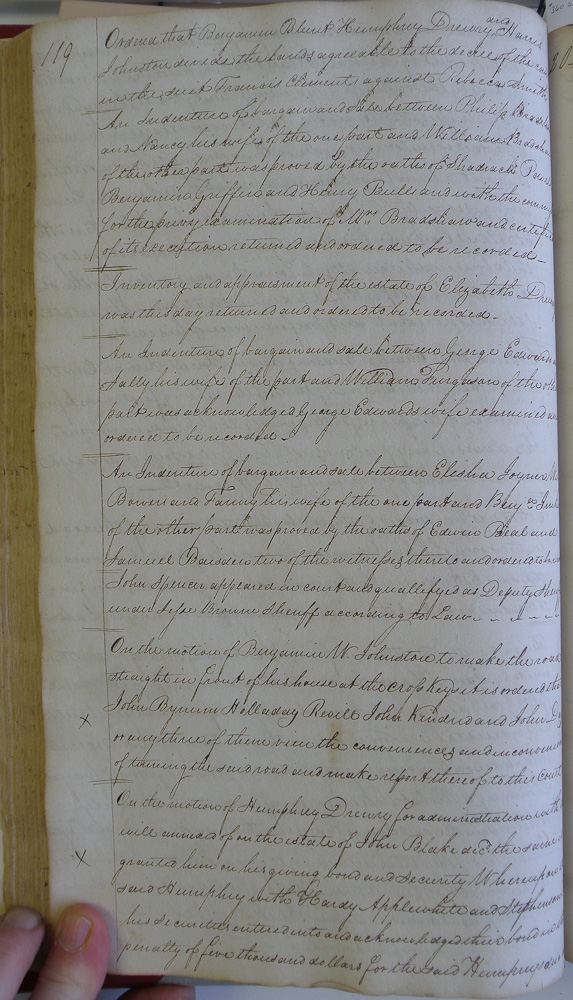 119
Ordered that Benjamin Blunt Humphrey Drewry and Harris
Johnston devide the lands agreeable to the decree of the
in the suit Francis Clements against Rebecca
An Indenture of bargain and sale between Philip
and Nancy his wife of the one part and William Bradshaw
of the other part was proved by the oaths of Shadrack
Benjamin Griffin and Henry Bulls and with the
for the privy examination of Mrs Bradshaw and
of its execution returned and ordered to be recorded
Inventory and appraisement of the estate of Elizabeth Drewry
was this day returned and ordered to be recorded.
An Indenture of bargain and sale between George Edwards
Sally his wife of the part and William Furgason of the
part was acknowledged George Edwards wife examined
ordered to be recorded
An Indenture of bargain and sale between Elisha Joyner
Bowers and Fanny his wife of the one part and
of the other part was proved by the oaths of Edwin Beal and
Samuel Baisden two of the witnesses thereto and ordered to
John Spencer appeared in court and quallefyed as Deputy
under Jesse Browne Sheriff according to Law
On the motion of Benjamin W. Johnston to make the road
straight in front of his house at the cross Keys it is ordered
X John Bynum Holladay Revill John Kindred and John
or any three of them view the conveniences and
of turning the said road and make report thereof to this Court
On the motion of Humphrey Drewry for administration with
will annexed of on the estate of John Blake decd. the same
X granted him on his giving bond and security Whereupon
said Humphrey with Hardy Applewhite and
his securities entered into and acknowledged their bond in
penalty of five thousand dollars for the said Humphrys